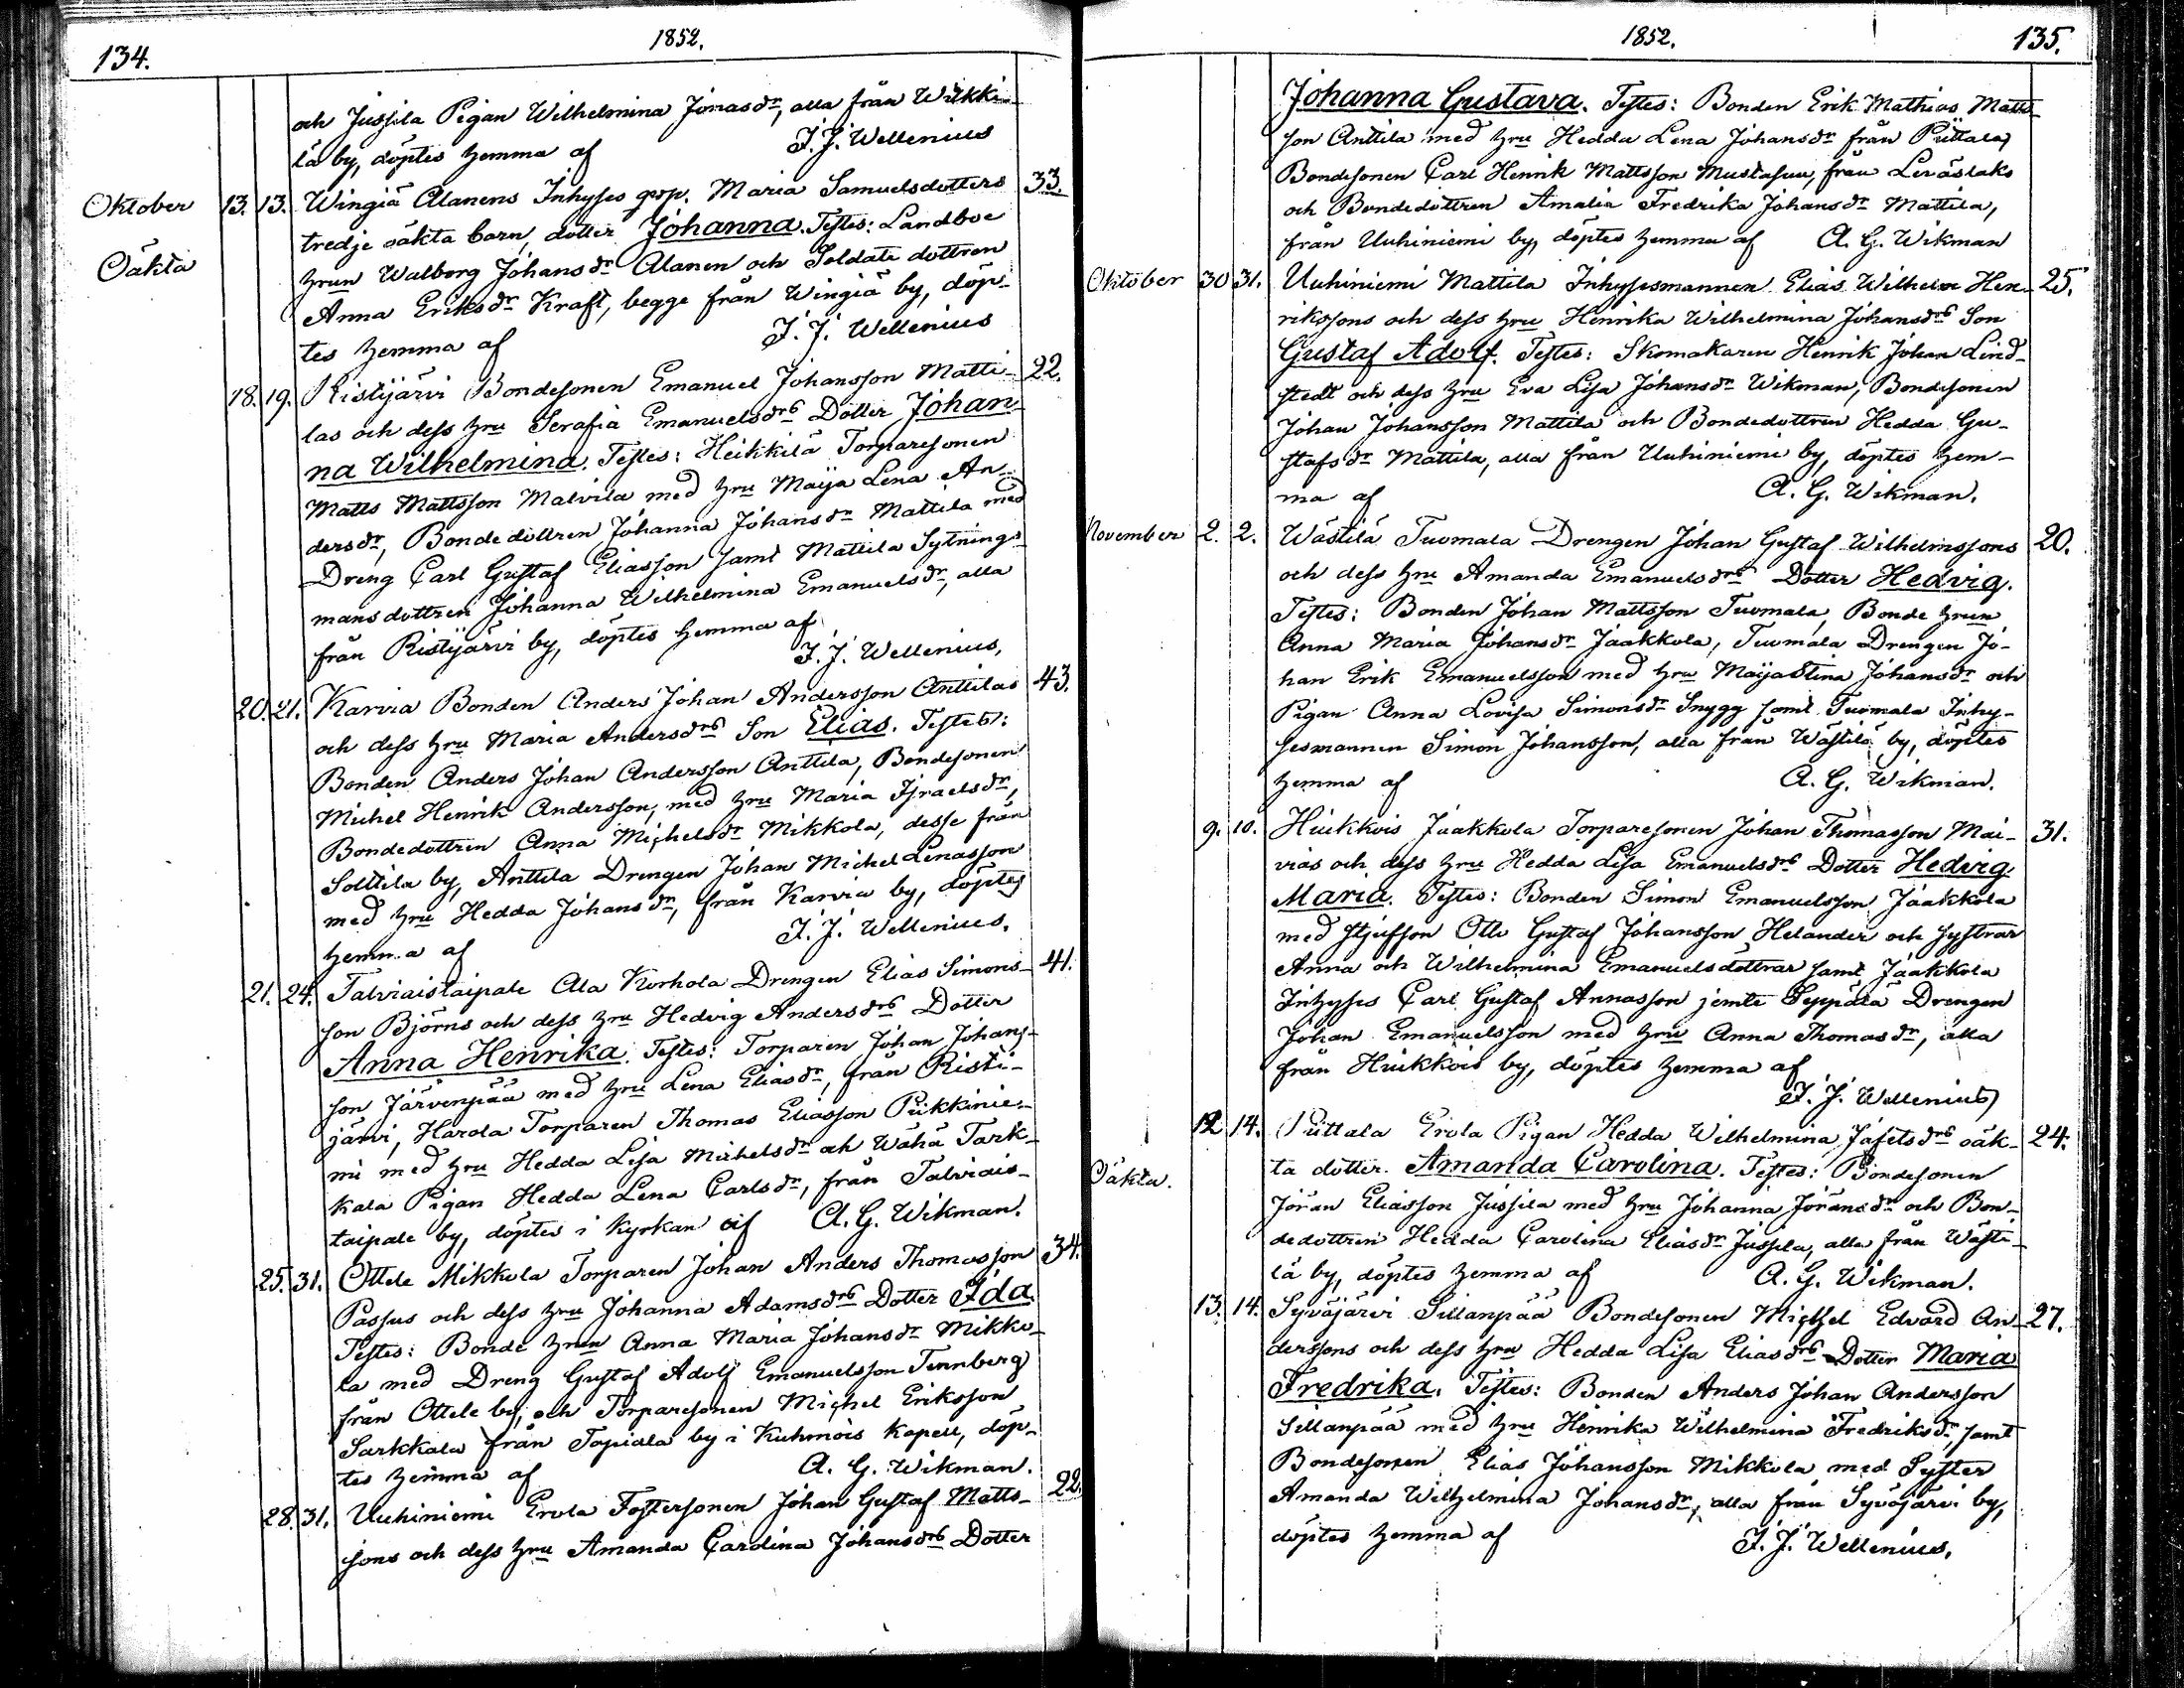 134.
1852.
och Jussila Pigan Wilhelmina Jonasdr, alla från Wilkki-
lä by, döptes hemma af J. J. Wellenius
Oktober 13. 13. Wingiä Alanens Inhyses qvp. Maria Samuelsdotters 33.
Oäkta tredje oäkta barn, dotter Johanna. Testes: Landboe
hrun Walborg Johansdr Alanen och Soldate dottren
Anna Eriksdr Kraft, begge från Wingiä by, döp-
tes hemma af J. J. Wellenius
18. 19. Ristijärvi Bondesonen Emanuel Johansson Matti- 22.
las och dess hru Serafia Emanuelsdrs Dotter Johan-
na Wilhelmina. Testes: Heikkilä Torparesonen
Matts Mattsson Malvila med hru Maija Lena An-
dersdr, Bondedottren Johanna Johansdr Mattila med
Dreng Carl Gustaf Eliasson samt Mattila Sytnings-
mansdottren Johanna Wilhelmina Emanuelsdr, alla
från Ristijärvi by, döptes hemma af
J. J. Wellenius,
20. 21. Karvia Bonden Anders Johan Andersson Anttilas 43.
och dess hru Maria Andersdrs Son Elias. Testes:
Bonden Anders Johan Andersson Anttila, Bondesonen
Michel Henrik Andersson, med hru Maria Israelsdr,
Bondedottren Anna Michelsdr Mikkola, desse från
Solttila by, Anttila Drengen Johan Michel Lenasson
med hru Hedda Johansdr, från Karvia by, döptes
hemma af J. J. Wellenius.
21. 24. Talviaistaipale Ala Korhola Drengen Elias Simons- 41.
son Björns och dess hru Hedvig Andersdrs Dotter
Anna Henrika. Testes: Torparen Johan Johans-
son Järvenpää med hru Lena Eliasdr, från Risti-
järvi, Harola Torparen Thomas Eliasson Pukkinie-
mi med hru Hedda Lisa Michelsdr och Wähä Tark-
kala Pigan Hedda Lena Carlsdr, från Talviais-
taipale by, döptes i Kyrkan af A. G. Wikman.
25. 31. Ottele Mikkola Torparen Johan Anders Thomasson 34.
Passus och dess hru Johanna Adamsdrs Dotter Ida.
Testes: Bonde hrun Anna Maria Johansdr Mikko-
la med Dreng Gustaf Adolf Emanuelsson Tennberg
från Ottele by, och Torparesonen Michel Eriksson
Sarkkala från Tapiala by i Kuhmois Kapell, döp-
tes hemma af A. G. Wikman.
28. 31. Uuhiniemi Erola Fostersonen Johan Gustaf Matts- 22.
sons och dess hru Amanda Carolina Johansdrs Dotter
1852.
135.
Johanna Gustava. Testes: Bonden Erik Mathias Matts-
son Anttila med hru Hedda Lena Johansdr från Puttala,
Bondesonen Carl Henrik Mattsson Mustasuu, från Leväslaks
och Bondedottren Amalia Fredrika Johansdr Mattila,
från Uuhiniemi by, döptes hemma af A. G. Wikman
Oktober 30 31. Uuhiniemi Mattila Inhysesmannen Elias Wilhelm Hen- 25.
rikssons och dess hru Henrika Wilhelmina Johansdrs Son
Gustaf Adolf. Testes: Skomakaren Henrik Johan Lind-
stedt och dess hru Eva Lisa Johansdr Wikman, Bondesonen
Johan Johansson Mattila och Bondedottren Hedda Gu-
stafsdr Mattila, alla från Uuhiniemi by, döptes hem-
ma af A. G. Wikman.
November 2. 2. Wästilä Tuomala Drengen Johan Gustaf Wilhelmssons 20.
och dess hru Amanda Emanuelsdrs Dotter Hedvig.
Testes: Bonden Johan Mattsson Tuomala, Bonde hrun
Anna Maria Johansdr Jaakkola, Tuomala Drengen Jo-
han Erik Emanuelsson med hru Maija Stina Johansdr och
Pigan Anna Lovisa Simonsdr Snygg samt Tuomala Inhy-
sesmannen Simon Johansson, alla från Wästilä by, döptes
hemma af A. G. Wikman.
9. 10. Hiukkois Jaakkola Torparesonen Johan Thomasson Mai- 31.
vias och dess hru Hedda Lisa Emanuelsdrs Dotter Hedvig
Maria. Testes: Bonden Simon Emanuelsson Jaakkola
med stjufson Otto Gustaf Johansson Helander och systrar
Anna och Wilhelmina Emanuelsdottrar samt Jaakkola
Inhyses Carl Gustaf Annasson jemte Seppälä Drengen
Johan Emanuelsson med hru Anna Thomasdr, alla
från Hiukkois by, döptes hemma af
J. J. Wellenius
12 14. Puttala Erola Pigan Hedda Wilhelmina Jafetsdrs oäk- 24.
Oäkta. ta dotter Amanda Carolina. Testes: Bondesonen
Jöran Eliasson Jussila med hru Johanna Jöransdr och Bon-
dedottren Hedda Carolina Eliasdr Jussila, alla från Wästi-
lä by, döptes hemma af A. G. Wikman.
13. 14. Syväjärvi Sillanpää Bondesonen Michel Edvard An- 27.
derssons och dess hru Hedda Lisa Eliasdrs Dotter Maria
Fredrika. Testes: Bonden Anders Johan Andersson
Sillanpää med hru Henrika Wilhelmina Fredriksdr, samt
Bondesonen Elias Johansson Mikkola med Syster
Amanda Wilhelmina Johansdr, alla från Syväjärvi by,
döptes hemma af J. J. Wellenius.